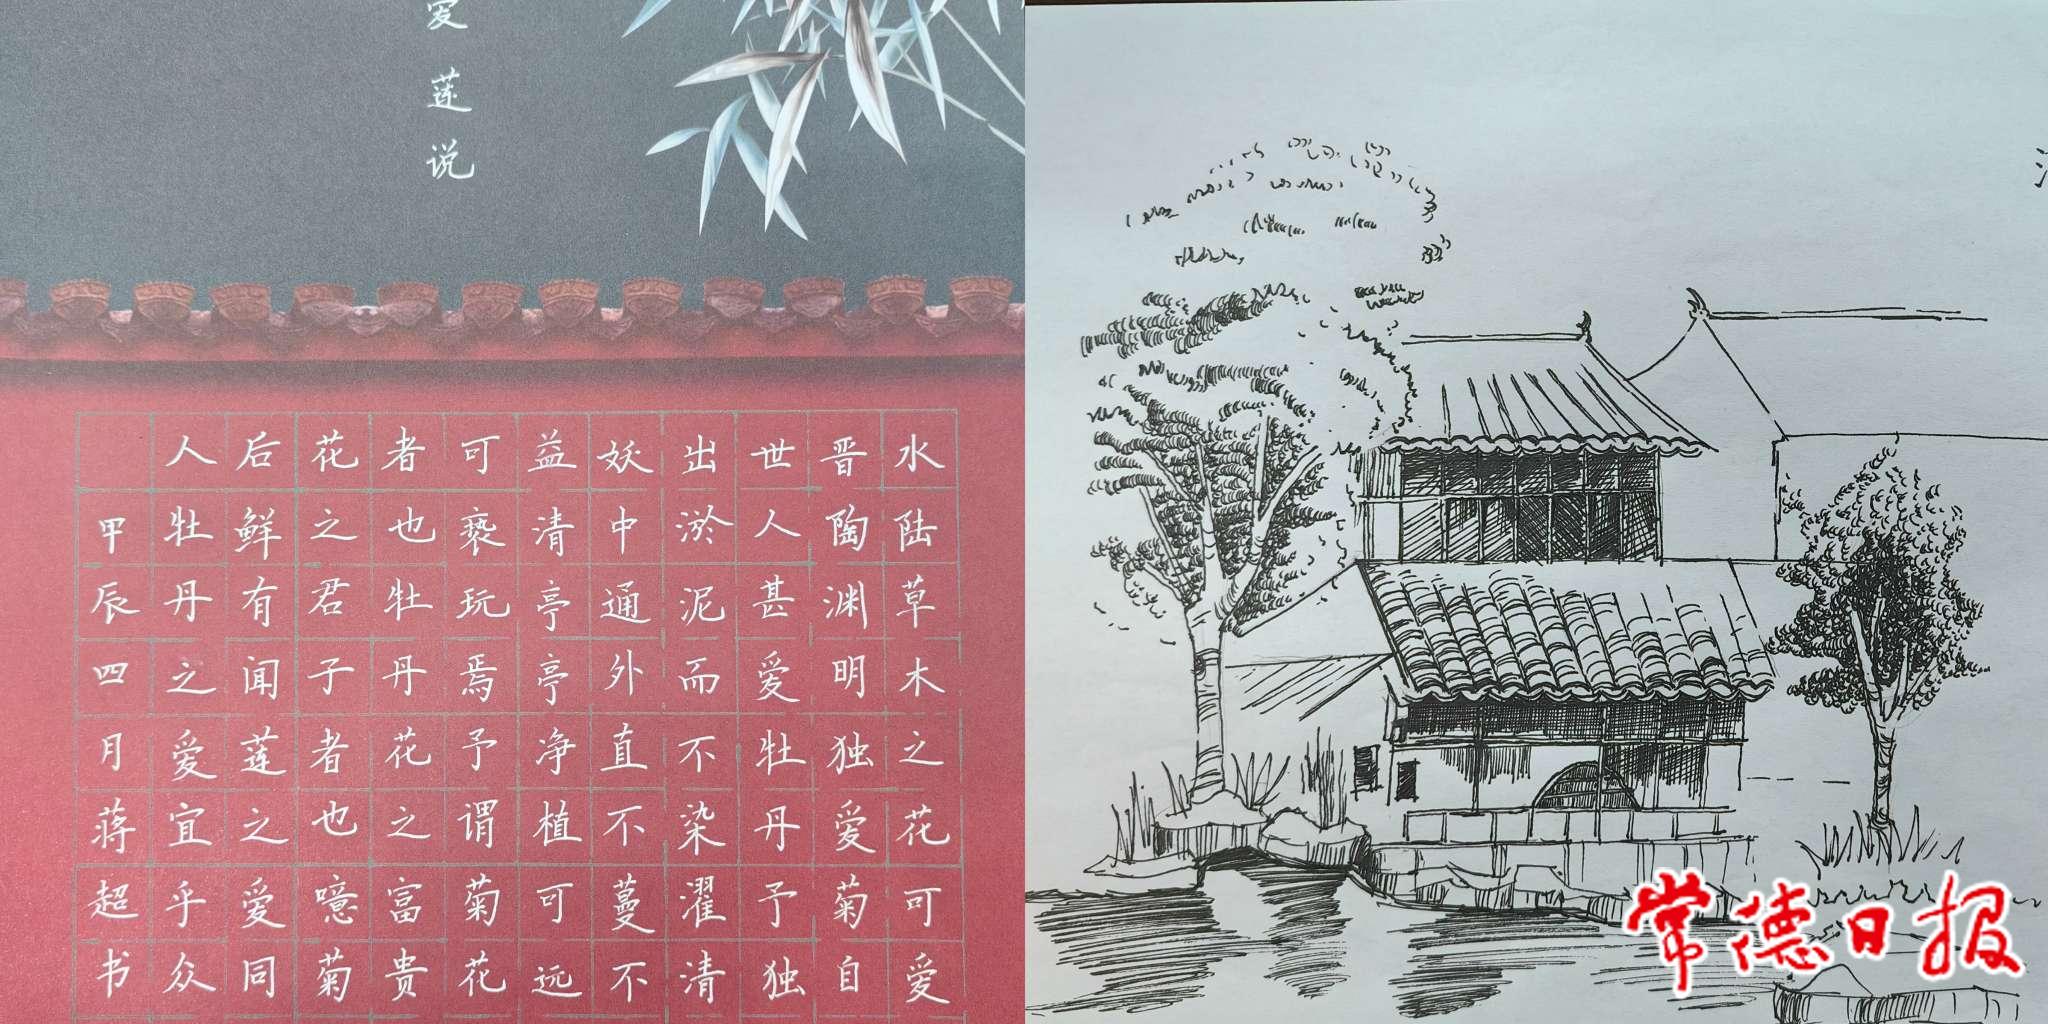 爱莲说
水陆草木之花可爱
晋陶渊明独爱菊自
世人甚爱牡丹予独
出淤泥而不染濯清
妖中通外直不蔓不
益清亭亭净植可远
可亵玩焉予谓菊花
者也牡丹花之富贵
花之君子者也噫菊
后鲜有闻莲之爱同
人牡丹之爱宜乎众
甲辰四月蒋超书
常德日报